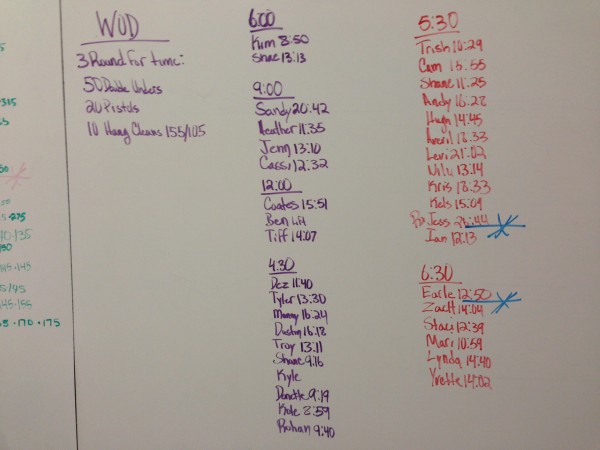 WOD
3 Round For time:
50 Double Unders
20 Pistols
10 Hang Cleans 155/105
6:00
Kim 8:50
Shae 13:13
9:00
Sandy 20:42
Heather 11:35
Jenn 13:10
Cassi 12:32
12:00
Coates 15:51
Ben
Tiff 14:07
4:30
Dez 11:40
Tyler 13:30
Manny 16:24
Dustin 16:18
Troy 13:11
Shane 9:16
Kyle
Danette 9:19
Kole 8:59
Rohan 9:40
5:30
Trish 10:29
Cam 15:55
Shane 11:25
Andy 16:28
Hugh 14:45
Averil 18:33
Levi 21:02
13:14
Kris 18:33
Kels 15:09
Jess 26:44
Ian 12:13
6:30
Earle 12:50
Zach 14:04
Staci 12:39
Mari 10:59
Lynda 14:40
Yvette 14:02
315
275
145
155
170 · 175